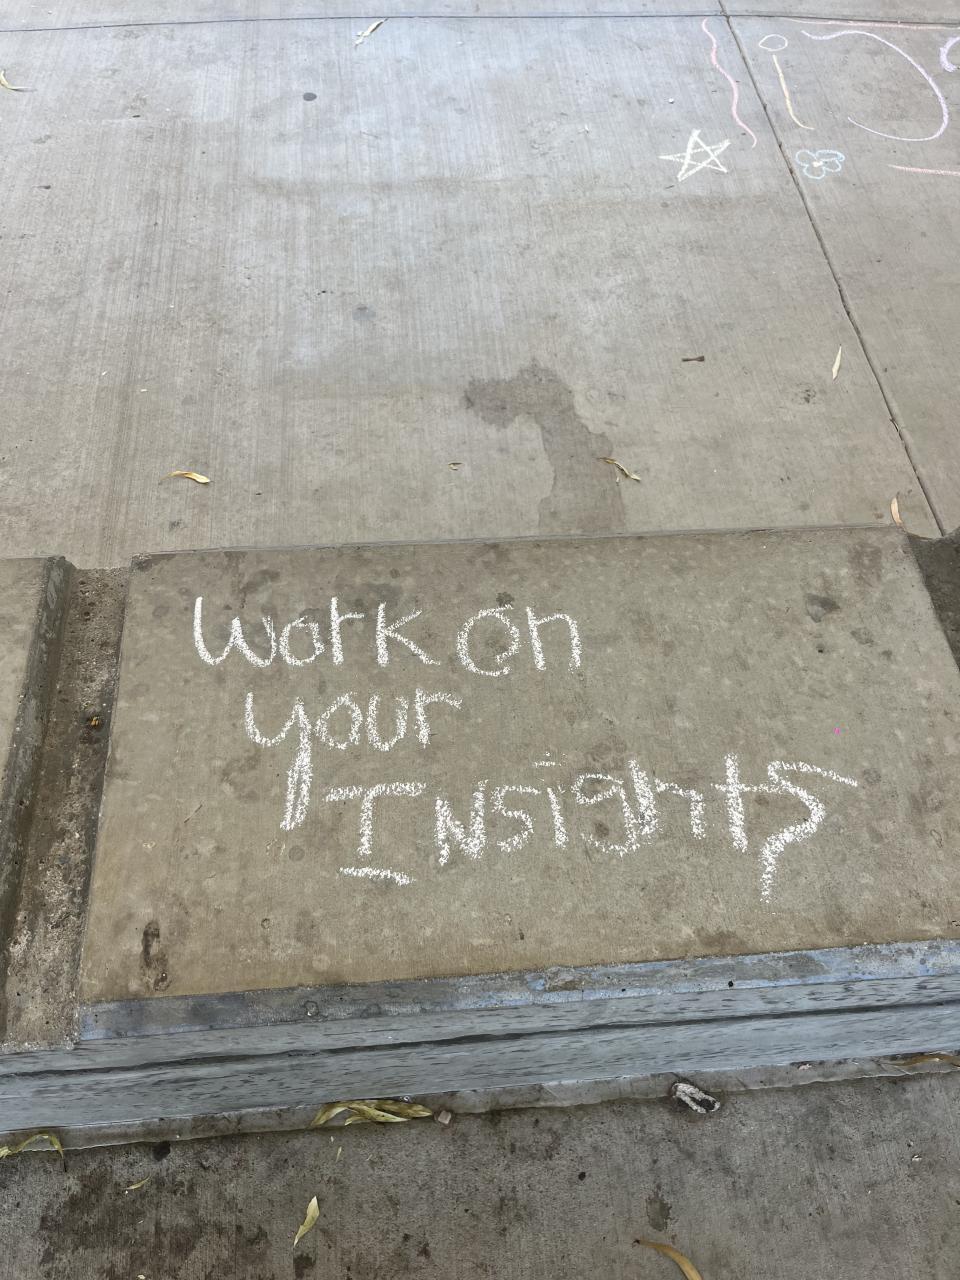 Work on
your
INsights